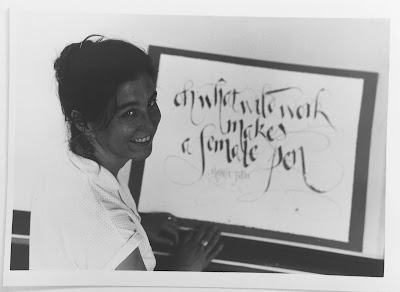 Oh what wild work
makes
a female pen